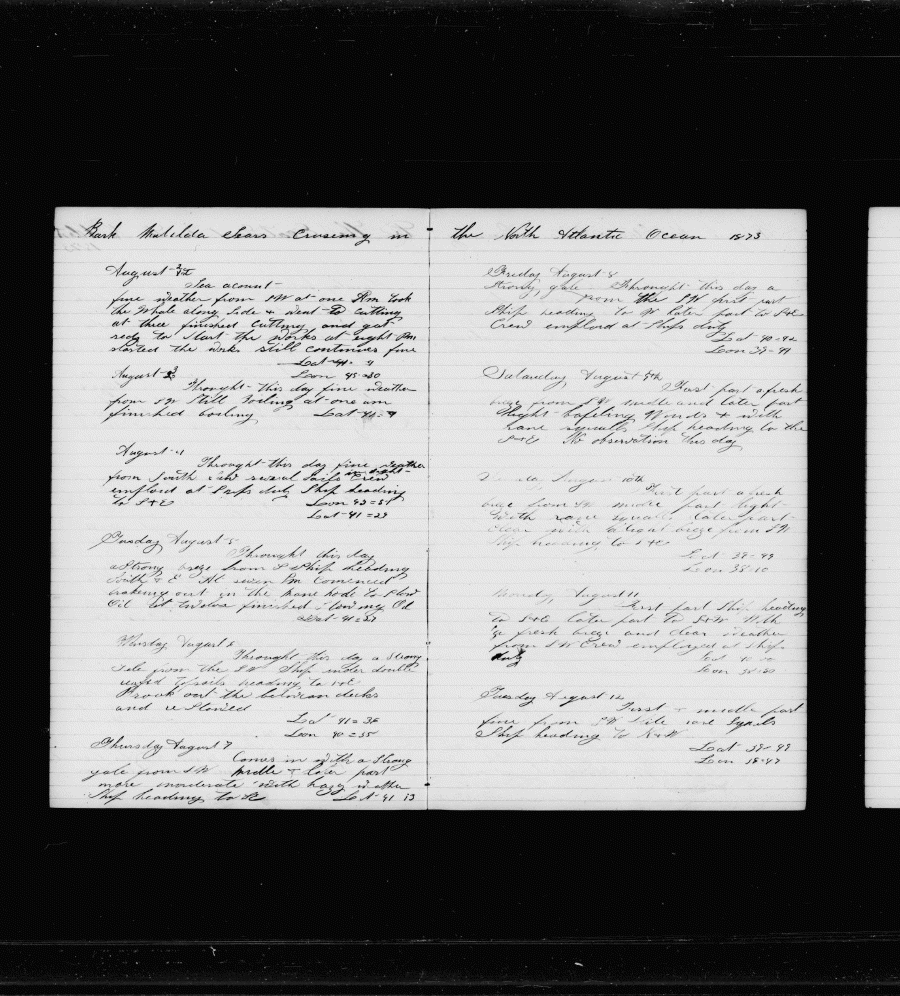 Bark Matilda Sears Cruseing in
August 2nd
Sea acount
fine weather from SW at one Pm took
the Whale along Side & went to Cutting
at three finished Cutting and got
redy to Start the works at eight Pm
started the works still continues fine
Lat 41
Leon 45=30
August 3
Throught this day fine weather
from SW Still Boiling at one am
finished boiling Lat
August 4
Throught this day fine weather
from South saw sevral Sails in sight Crew
emploid at Ships duty Ship heading
to S+E Leon 43=51
Lat 41=29
Tuesday August 5
Throught this day
a Strong breze from S Ship heading
South & E At seven Pm Comenced
brakeing out in the mane hole to Stow
Oil at twelve finished Stowing Oil
Lat 41=29
August 6
Throught this day a Strong
gale from the SW Ship under double
reefed topsails heading to
Brook out the between decks
and reStowed
Lat 41=32
Leon 40=55
Thursday August 7
Comes in with a Strong
gale from SW Middle & later part
more moderate with hazy weather
Ship heading to E Lat 41 13
the North Atlantic Ocean 1873
Friday August 8
Strong gale Throught this day a
from the SW first part
Ship heading to W later part to S+E
Crew emploid at Ships duty
Lat 40=42
Leon 39-44
Saturday August 9th
First part a fresh
breze from SW midle and later part
light bafeling Winds & with
rane squalls Ship heading to the
S+E No observation this day
August 10th
First part a fresh
breze from SW midle part light
With rane squalls later part
clear with a light breze from SW
Ship heading to S+E
Lat 39-49
Leon 38-10
Monday August 11
First part Ship heading
to S+E later part to S+W With
a fresh breze and clear weather
from SW Crew employed at Ships
duty
Lat
Leon
Tuesday August 12
First & midle part
fine from SW rane Squals
Ship heading to N+W
Lat 39-49
Leon